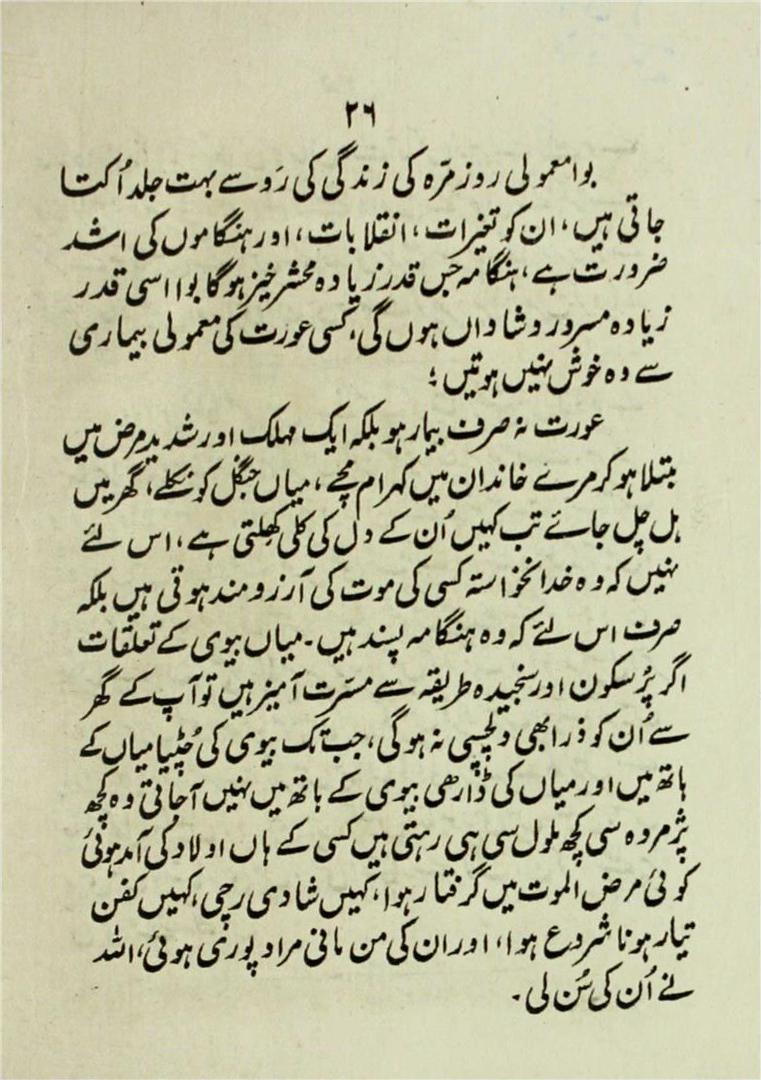 ۲۶
بوا معمولی روز مرّہ کی زندگی کی رَو سے بہت جلد اُکتا
جاتی ہیں، ان کو تغیرات، انقلابات، اور ہنگاموں کی اشد
ضرورت ہے، ہنگامہ جس قدر زیادہ محشر خیز ہوگا بوا اسی قدر
زیادہ مسرور و شاداں ہوں گی، کسی عورت کی معمولی بیماری
سے وہ خوش نہیں ہوتیں؛
عورت نہ صرف بیمار ہو بلکہ ایک مہلک اور شدید مرض میں
مبتلا ہو کر مرے خاندان میں کہرام مچے، میاں جنگل کو نکلے، گھر میں
ہل چل جائے تب کہیں اُن کے دل کی کلی کھلتی ہے، اس لئے
نہیں کہ وہ خدانخواستہ کسی کی موت کی آرزومند ہوتی ہیں بلکہ
صرف اس لئے کہ وہ ہنگامہ پسند ہیں۔ میاں بیوی کے تعلقات
اگر پُرسکون اور سنجیدہ طریقہ سے مسّرت آمیز ہیں تو آپ کے گھر
سے اُن کو ذرا بھی دلچسپی نہ ہوگی، جب تک بیوی کی چُٹیا میاں کے
ہاتھ میں اور میاں کی ڈاڑھی بیوی کے ہاتھ میں نہیں آجاتی وہ کچھ
پژمردہ سی کچھ ملول سی ہی رہتی ہیں کسی کے ہاں اولاد کی آمد ہوئی
کوئی مرض الموت میں گرفتار ہوا، کہیں شادی رچی، کہیں کفن
تیار ہونا شروع ہوا، اور ان کی من مانی مراد پوری ہوئی، اللہ
نے اُن کی سُن لی۔